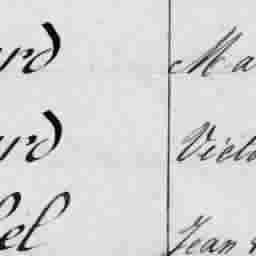 rd Ma
rd Victo
el Jean